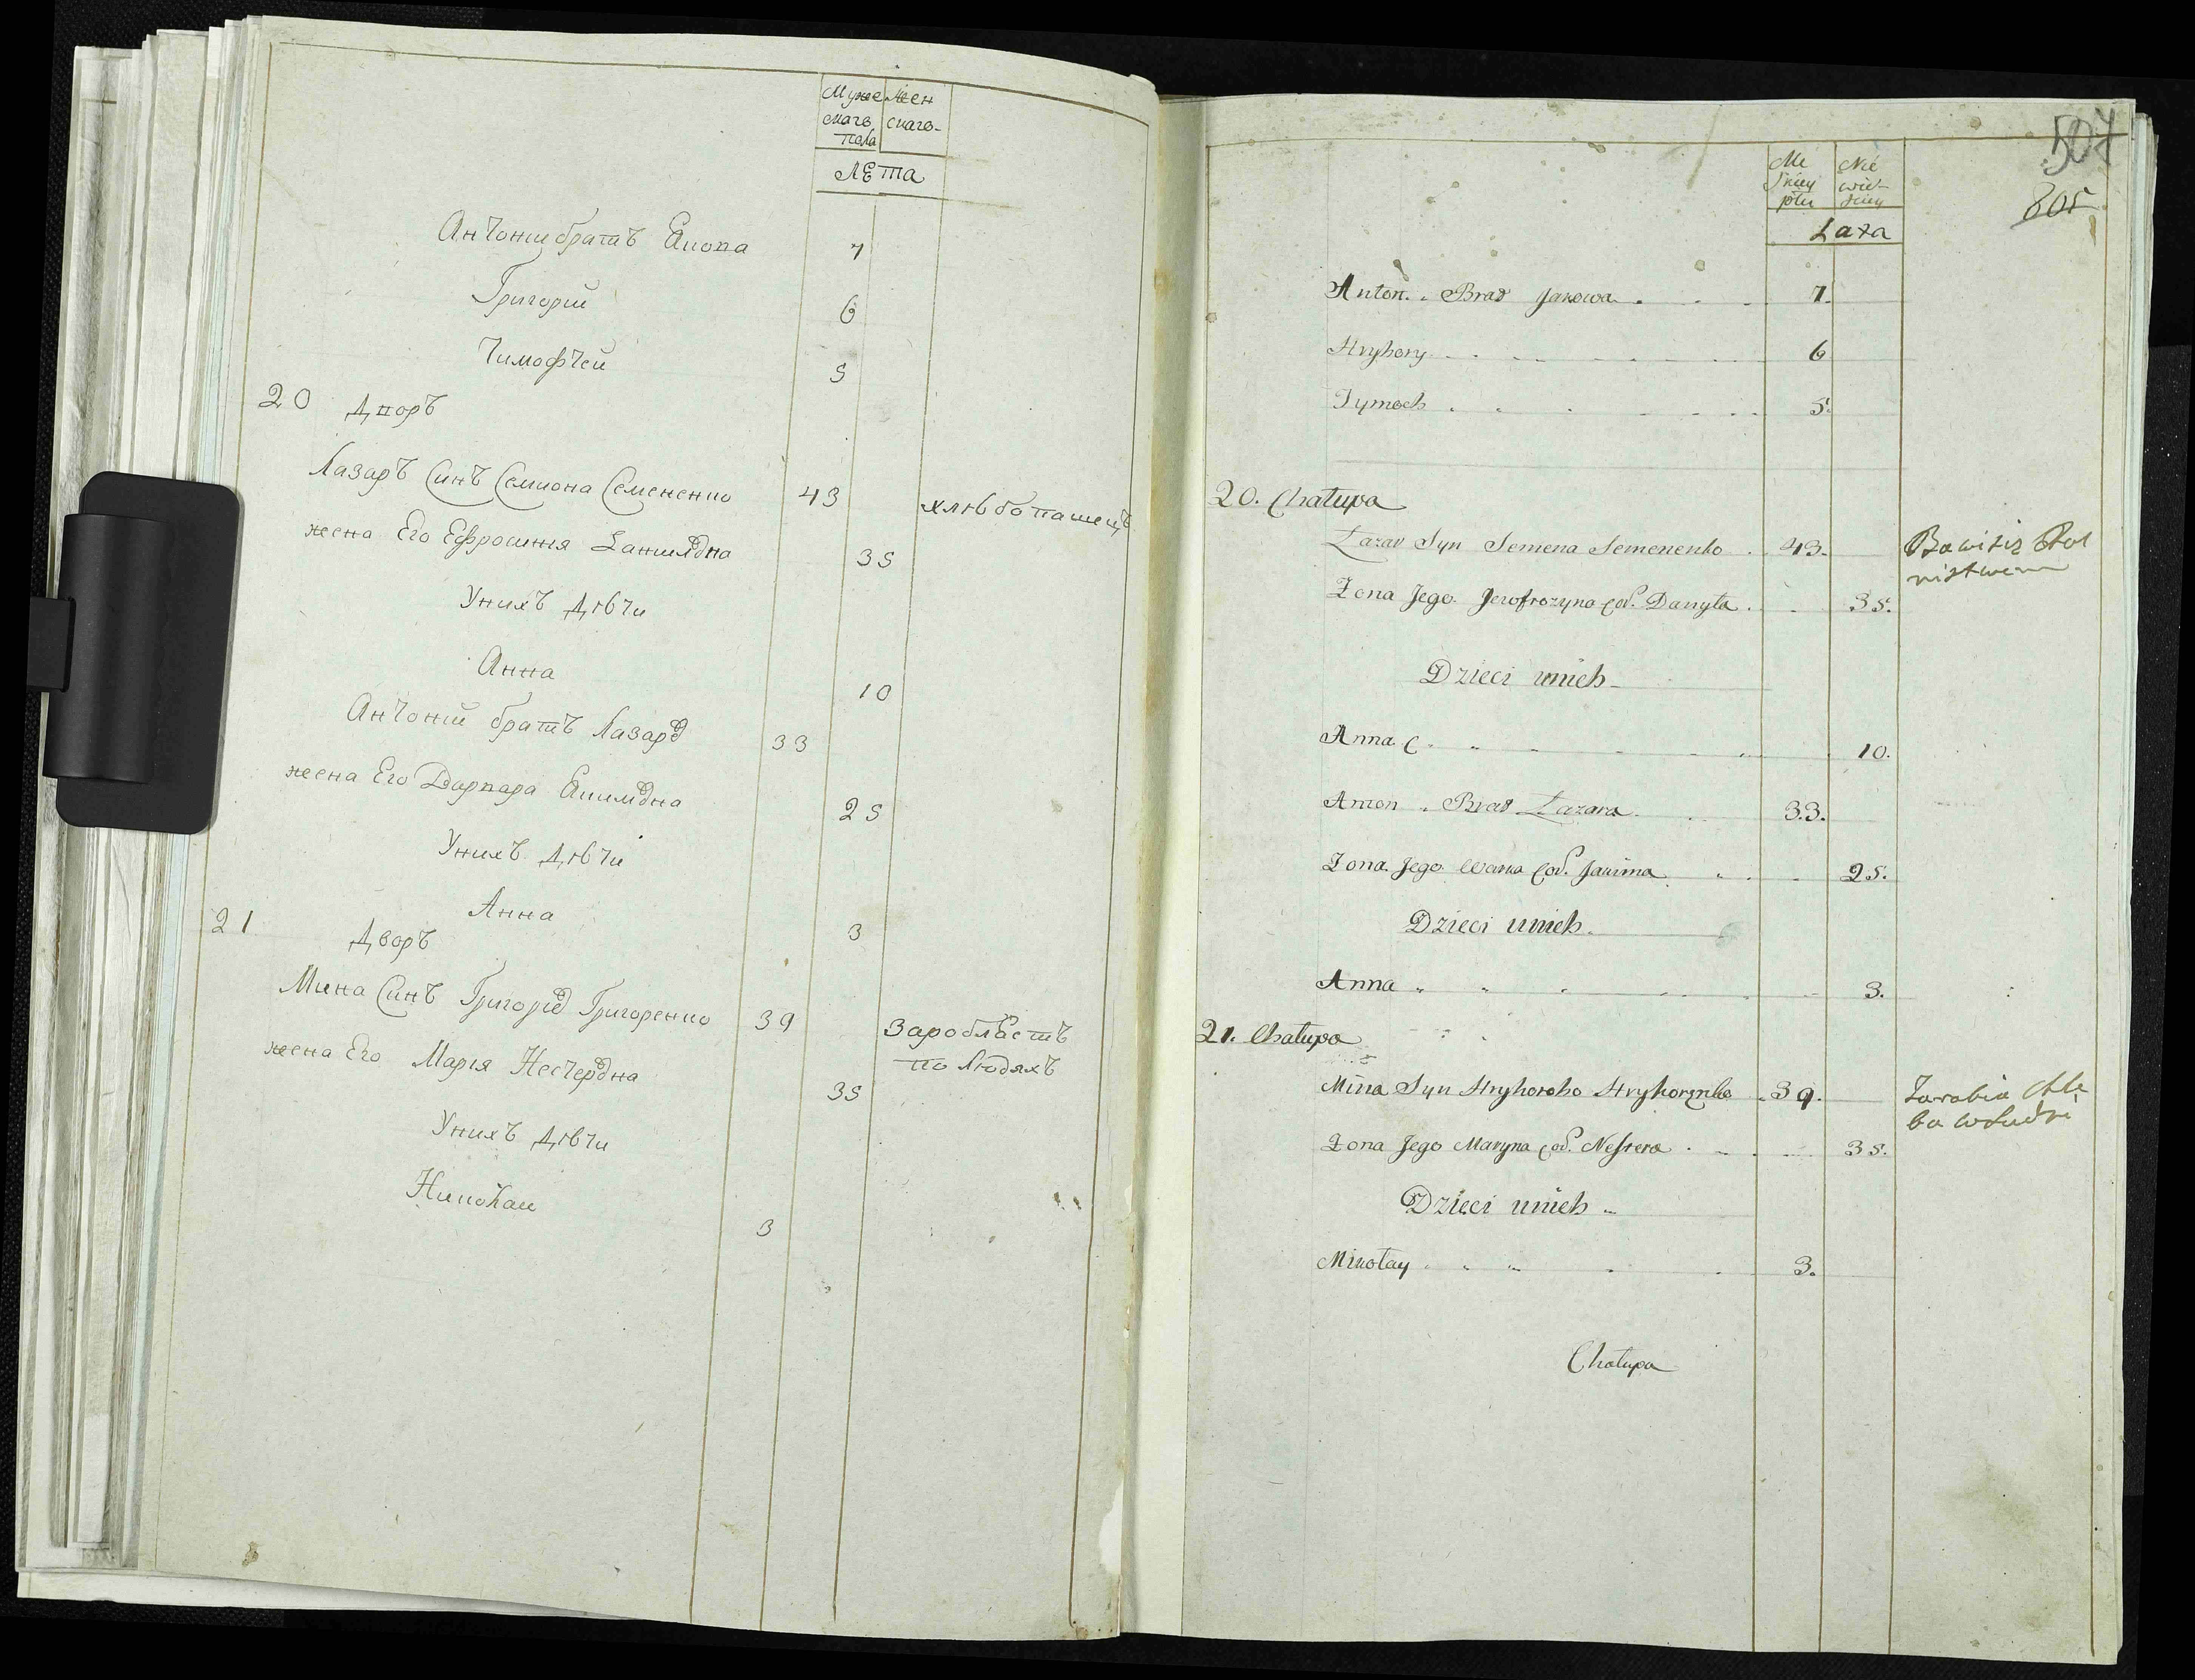 Мужескагѡ пола
Женскагѡ
лЕта
Антоній братъ Якова 7
Григорій 6
Тимофтей 5
20 Дворъ
Лазаръ Синъ Семиона Семененко 43 хлѣбопашецъ
жена Его Ефросинія Данилоꙋна 35
Унихъ Дѣти
Анна 10
Антоній братъ Лазарꙋ 33
жена Его Варвара Якимоꙋна 25
Унихъ Дѣти
Анна 3
21 Дворъ
Мина Синъ Григорія Григоренко 39 Зароблаетъ
по Людяхъ
жена Его Марія Нестерꙋна 35
Унихъ Дѣти
Николай 3
507
805
Męskiey płci
Niewieściey
Lata
Anton Brat Jakowa 7.
Hryhory 6
Tymoch 5.
20. Chałupa
Łazar Syn Semena Semenenko 43. Bawi się Rol
nistwem
Żona Jego Jerofrozyna Cór. Danyła 35.
Dzieci unich
Anna C. 10.
Anton Brat Łazara 33.
Żona Jego Warka Cór. Jakima 25.
Dzieci unich
Anna 3.
21. Chałupa
Mina Syn Hryhoroho Hryhorenko 39. Zarabia Chle
ba w Ludzi
Żona Jego Maryna Cór. Nestera 35.
Dzieci unich
Mikołay 3.
Chałupa